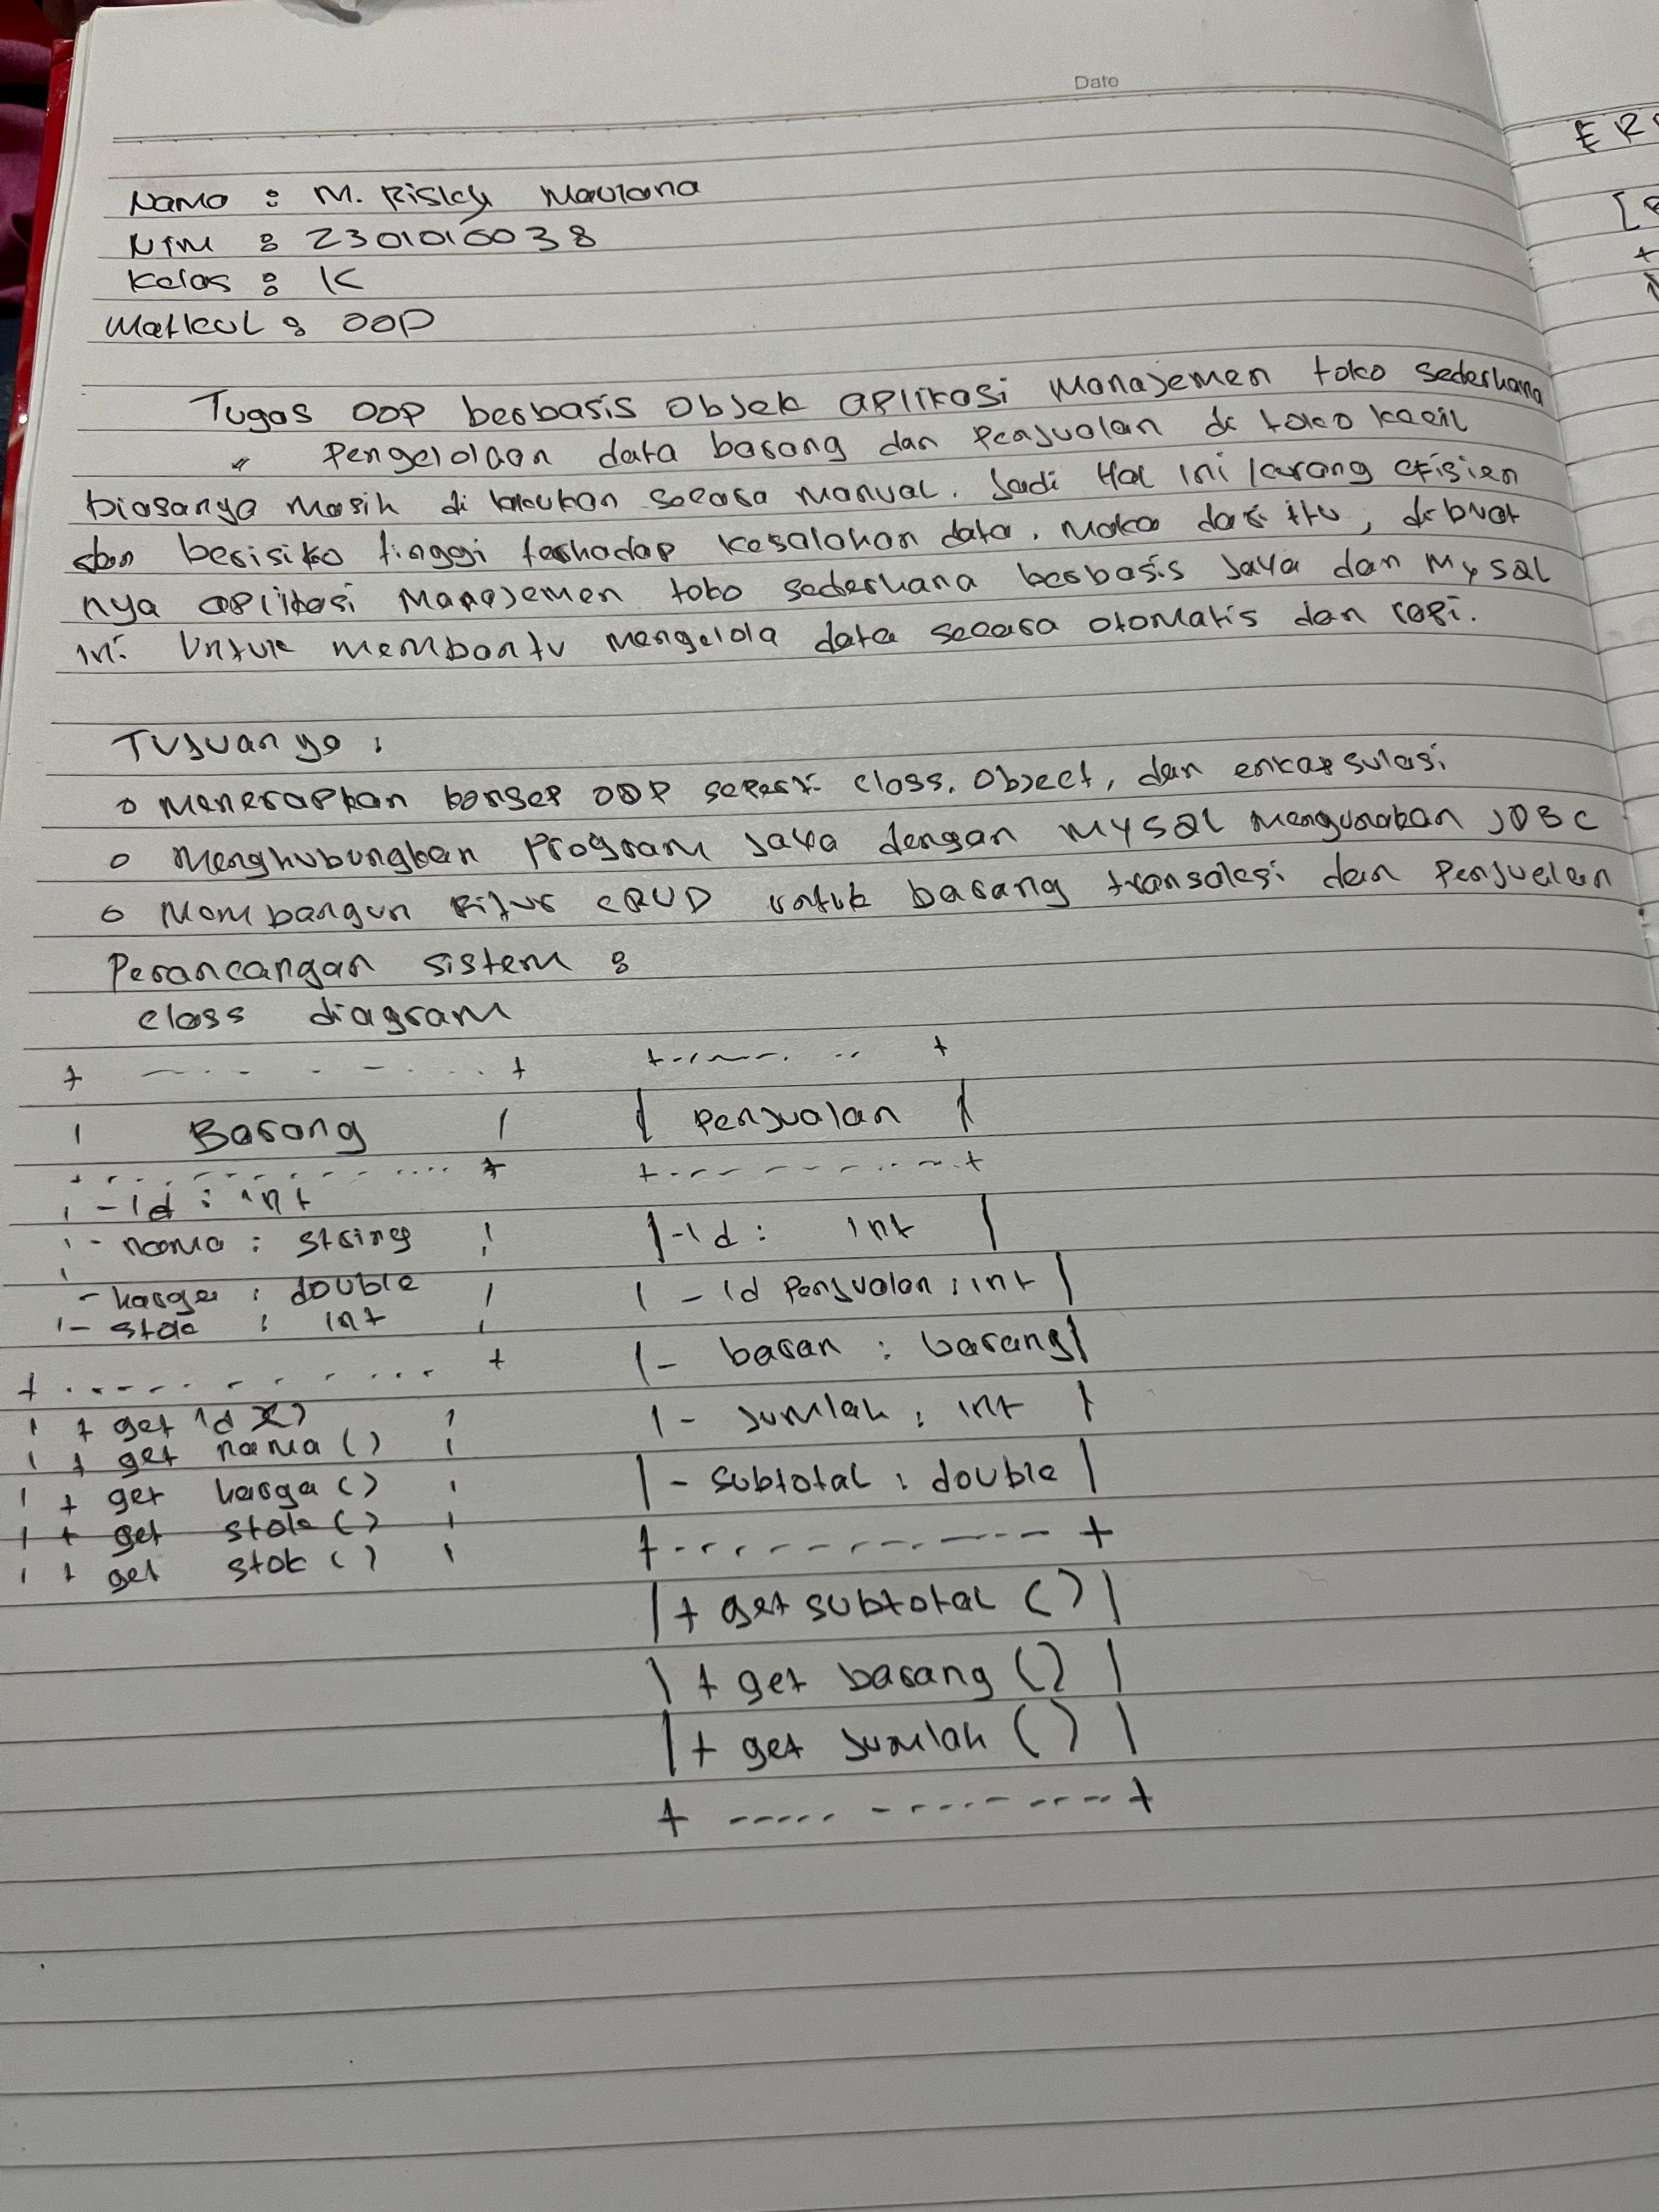 Date
Nama : M. Risky Maulana
Nim : 2301010038
Kelas : K
Matkul : OOP
Tugas OOP berbasis Objek aplikasi Manajemen toko sederhana
Pengelolaan data barang dan Penjualan di toko kecil
biasanya masih di lakukan secara manual. Jadi Hal ini kurang efisien
dan berisiko tinggi terhadap kesalahan data. Maka dari itu, di buat
nya aplikasi Manajemen toko sederhana berbasis Java dan MySQL
ini Untuk membantu mengelola data secara otomatis dan rapi.
Tujuan ya :
o Menerapkan konsep OOP seperti class, Object, dan enkapsulasi
o Menghubungkan Program Java dengan MYSQL Mengunakan JDBC
o Membangun Fitur CRUD untuk barang transaksi dan Penjualan
Perancangan sistem :
class diagram
Barang | Penjualan |
- Id : int
- nama : string
|- Id : int |
- harga : double
| - Id Penjualan : int |
|- stok : int
|- baran : barang|
+ get id ()
|- Jumlah : int |
+ get nama ()
+ get harga ()
|- subtotal : double |
+ get stok ()
+ get stok ()
|+ get subtotal () |
| + get barang () |
|+ get Jumlah () |
ER
[
+